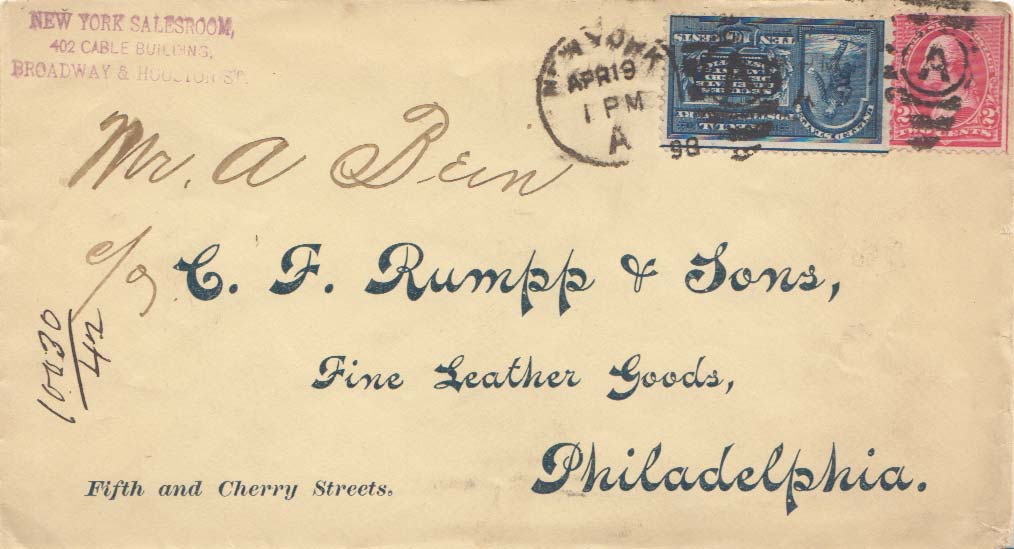 NEW YORK SALESROOM,
402 CABLE BUILDING,
BROADWAY & HOUSTON ST.
NEW YORK
APR 19
1 PM
A
98
A
TWO CENTS
2
Mr. A Bein
c/o
C. F. Rumpp & Sons,
Fine Leather Goods,
Philadelphia.
Fifth and Cherry Streets.